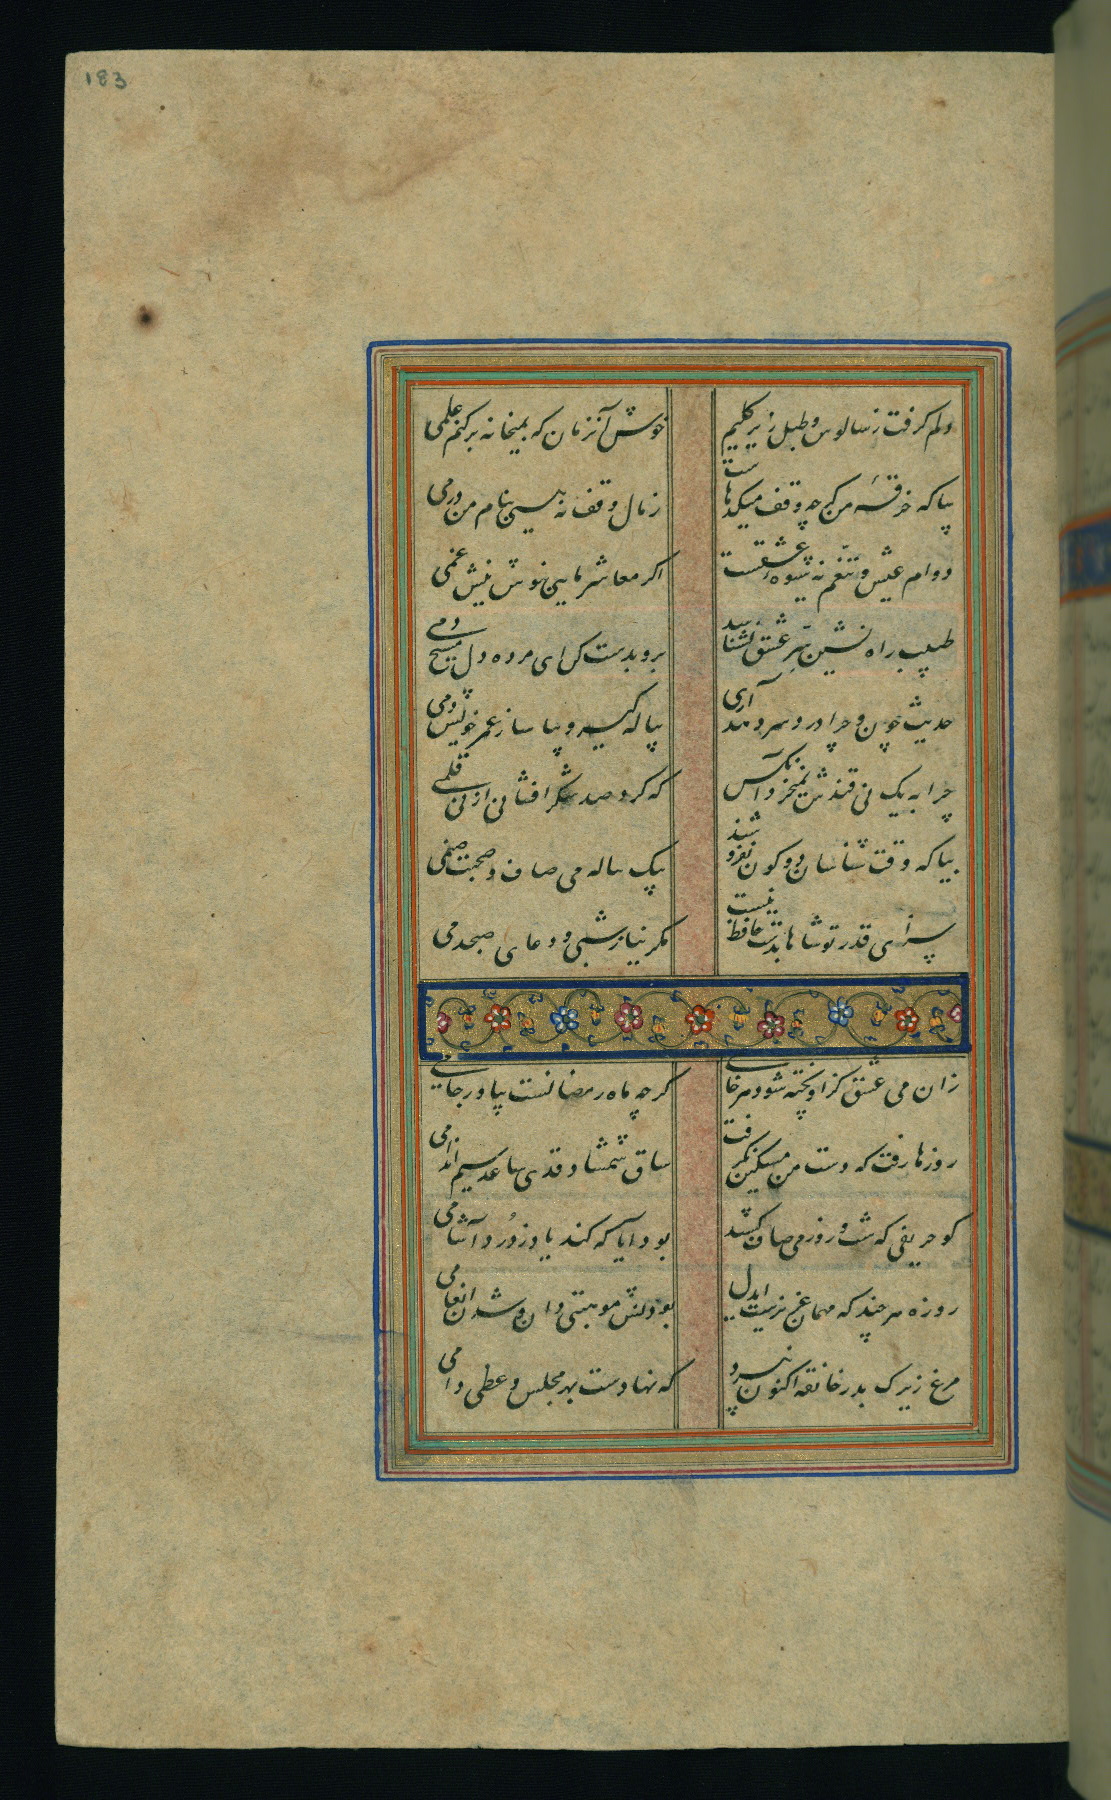 183
دلم کرفت ز سالوس و طبل زیر کلیم
خوش آنزمان که بمیخانه برکنم علمی
بیا که خرقهٔ من کرچه وقف میکدهاست
ز مال وقف نه بینی بنام من درمی
دوام عیش و تنعّم نه شیوه عشقست
اکر معاشر مایی بنوش نیش غمی
طبیب راه نشین سرّ عشق نشناسد
برو بدست کن ای مرده دل مسیح دمی
حدیث چون و چرا درد سر دهد آری
پیاله کیر و بیاساز عمر خویش دمی
چرا به یک نی قندش نمیخرد آنکس
که کرد صد شکر افشانی از نی قلمی
بیا که وقت شناسان دو کون نفروشند
بیک پیاله می صاف و صحبت صنمی
سزای قدر تو شاها بدست حافظ نیست
مکر نیاز شبی و دعای صبحدمی
زان می عشق کزاو پخته شود هر خامی
کرچه ماه رمضانست بیاور جامی
روزها رفت که دست من مسکین نکرفت
ساق شمشاد قدی ساعد سیم اندامی
کو حریفی که شب و روز می صاف کشد
بود آیا که کند یاد ز دُرد آشامی
روزه هر چند که مهمان عزیزست ایدل
بودنش موهبتی دان و شدن انعامی
مرغ زیرک بدر خانقه اکنون نپرد
که نهادست بهر مجلس وعظی دامی